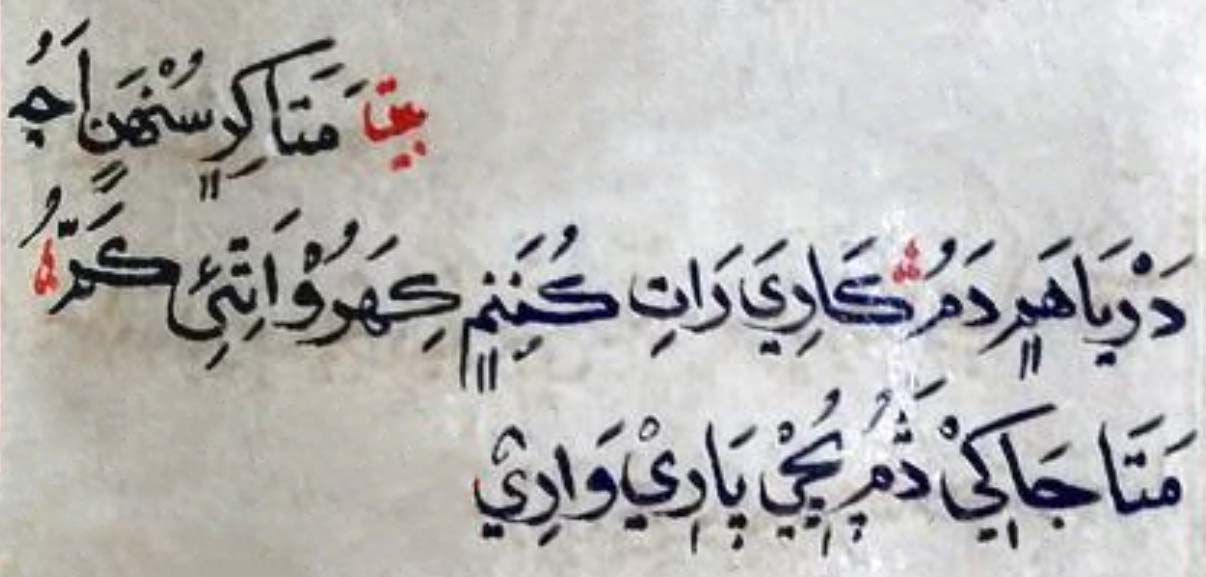 بيت مَتَا كِرِ سُنْهَنِ اَڄُ
دَرْيَاهَمِ دَمُ كَارِيَ رَاتِ كُنَنِمِ كِهَرُوْ اَتِئِ كَمُّ
مَتَا جَاكِيْ دَمُّ پَارِيْ وَارِيْ